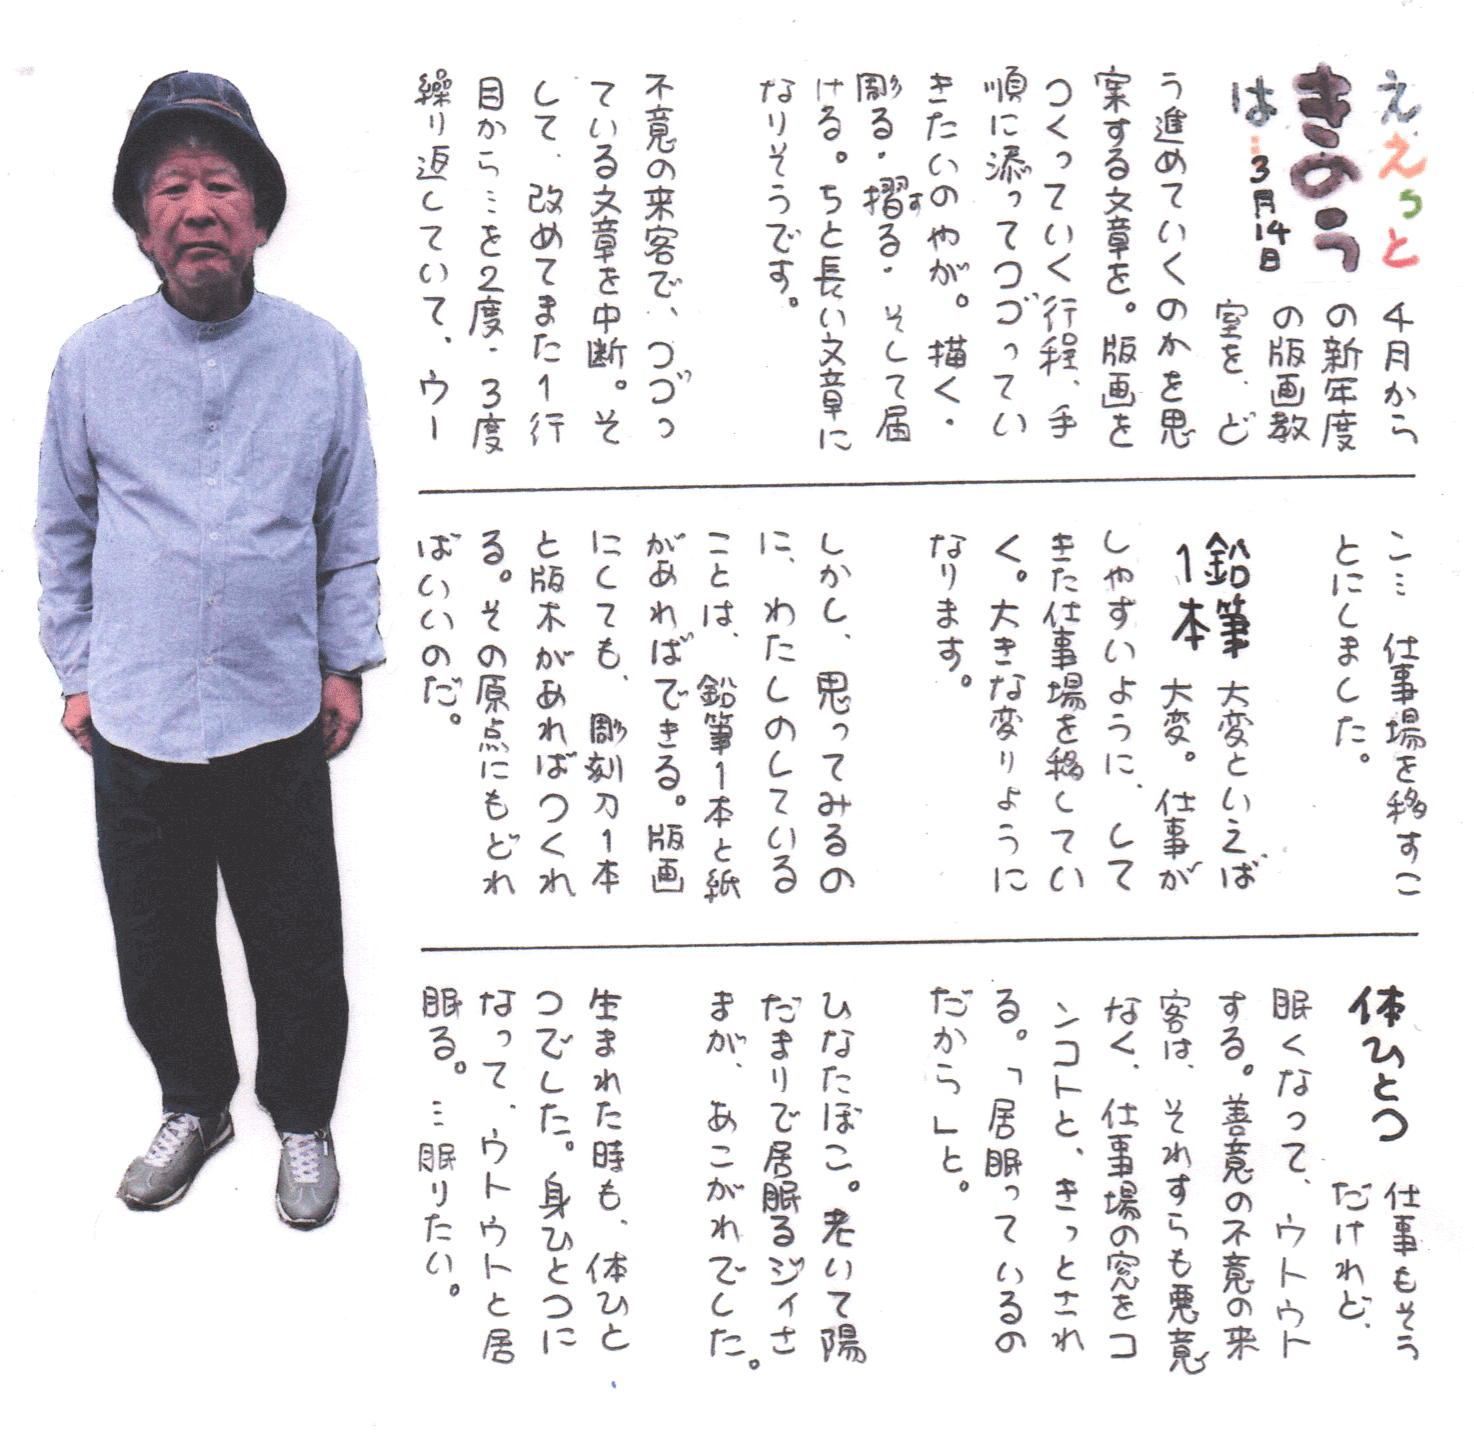 ええっと
きのう
は…3月14日
4月から
の新年度
の版画教
室を、ど
う進めていくのかを思
案する文章を。版画を
つくっていく行程、手
順に添ってつづってい
きたいのやが。描く・
彫る・摺る・そして届
す
ける。ちと長い文章に
なりそうです。
不意の来客で、つづっ
ている文章を中断。そ
して、改めてまた1行
目から…を2度・3度
繰り返していて、ウー
ン… 仕事場を移すこ
とにしました。
鉛筆
1本
大変といえば
大変。仕事が
しやすいように、して
きた仕事場を移してい
く。大きな変りように
なります。
しかし、思ってみるの
に、わたしのしている
ことは、鉛筆1本と紙
があればできる。版画
にしても、彫刻刀1本
と版木があればつくれ
る。その原点にもどれ
ばいいのだ。
体ひとつ
仕事もそう
だけれど、
眠くなって、ウトウト
する。善意の不意の来
客は、それすらも悪意
なく、仕事場の窓をコ
ンコトと、きっとされ
る。「居眠っているの
だから」と。
ひなたぼこ。老いて陽
だまりで居眠るジイさ
まが、あこがれでした。
生まれた時も、体ひと
つでした。身ひとつに
なって、ウトウトと居
眠る。…眠りたい。